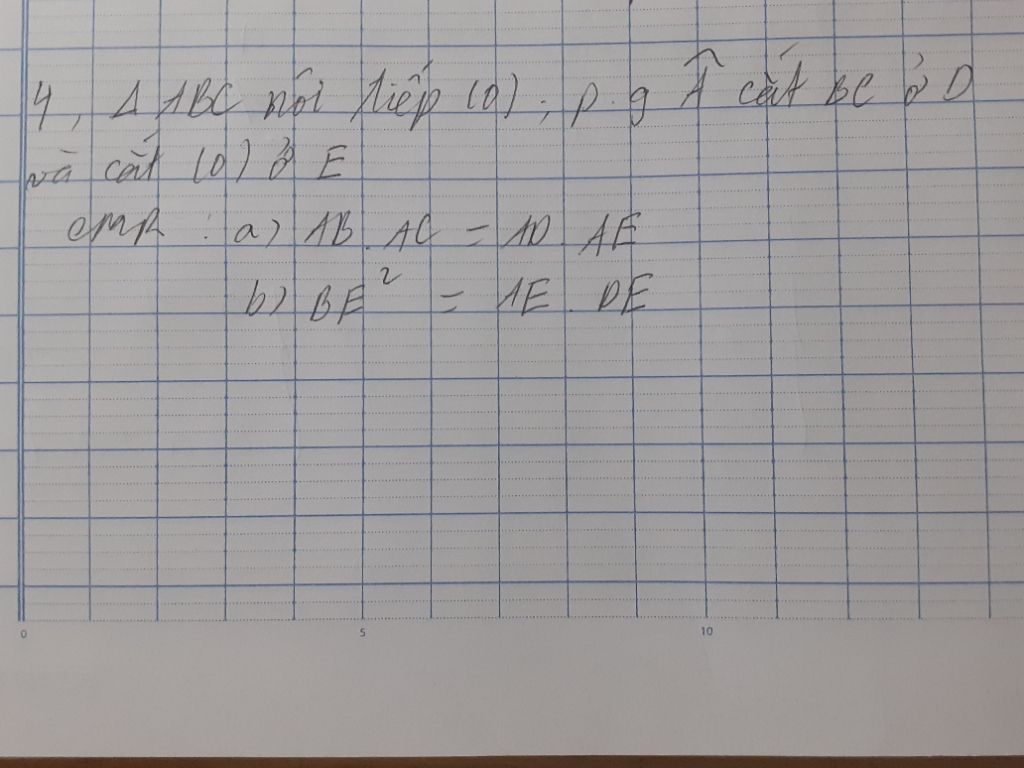 4, Δ ABC nội tiếp (O) ; p.g Â cắt BC ở D
và cắt (O) ở E
CMR : a) AB . AC = AD . AE
b) BE² = AE . DE
0 5 10